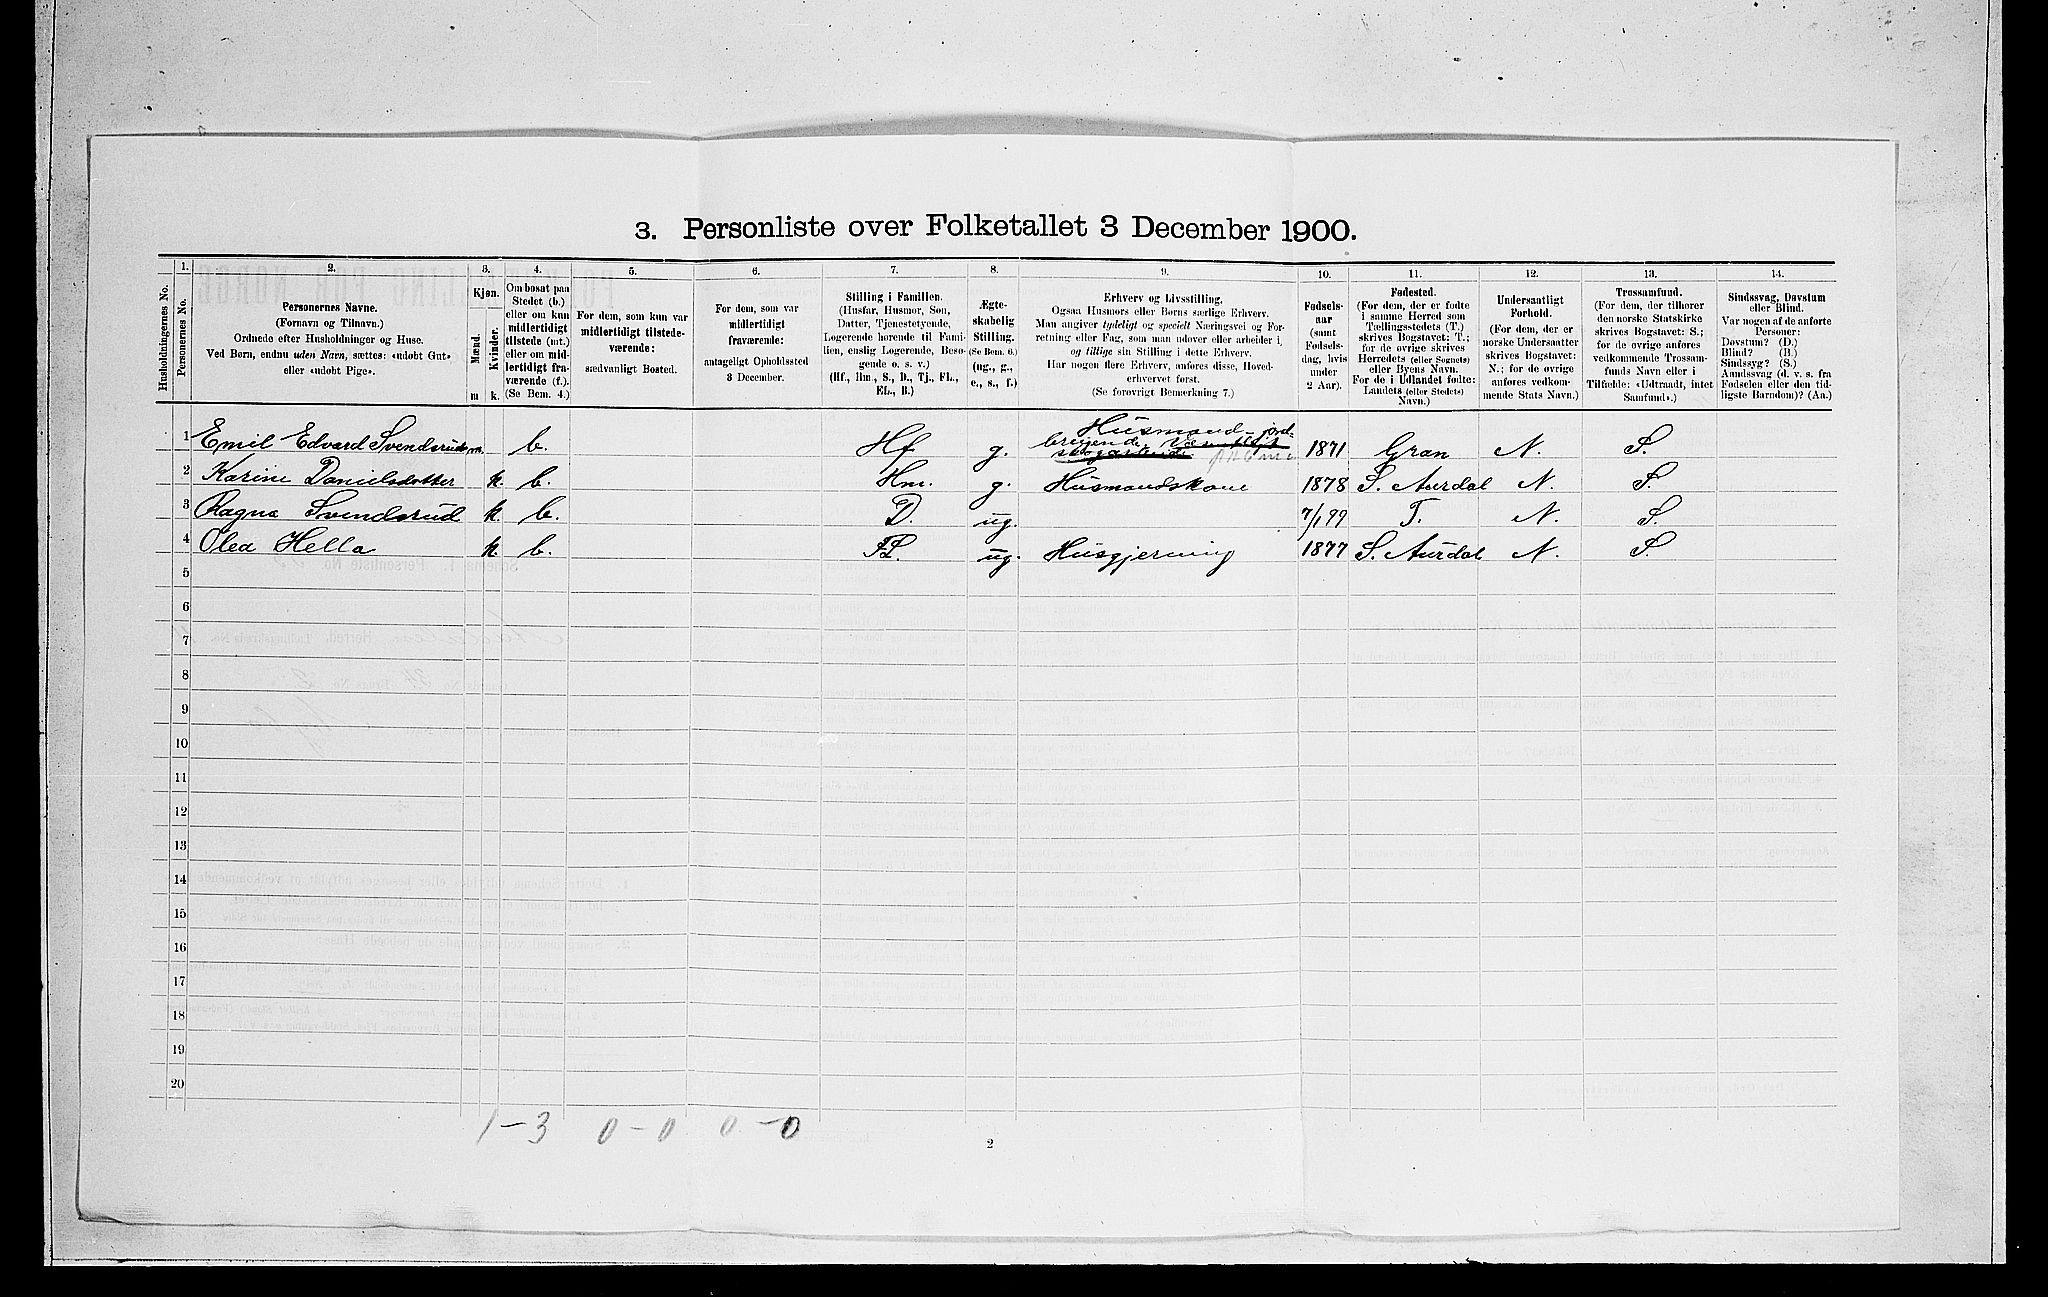 3. Personliste over Folketallet 3 December 1900.
1. 2. 3. 4. 5. 6. 7. 8. 9. 10. 11. 12. 13. 14.
Husholdningernes No.
Personernes No.
Personernes Navne.
(Fornavn og Tilnavn.)
Ordnede efter Husholdninger og Huse.
Ved Børn, endnu uden Navn, sættes: «udøbt Gut»
eller «udøbt Pige».
Kjøn.
Mænd.
Kvinder.
m k.
Om bosat paa
Stedet (b.)
eller om kun
midlertidigt
tilstede (mt.)
eller om mid-
lertidigt fra-
værende (f.).
(Se Bem. 4.)
For dem, som kun var
midlertidigt tilstede-
værende:
sædvanligt Bosted.
For dem, som var
midlertidigt
fraværende:
antageligt Opholdssted
3 December.
Stilling i Familien.
(Husfar, Husmor, Søn,
Datter, Tjenestetyende,
Logerende hørende til Fami-
lien, enslig Logerende, Besø-
gende o. s. v.)
(Hf., Hm., S., D., Tj., FL.,
EL., B.)
Ægte-
skabelig
Stilling.
(Se Bem. 6.)
(ug., g.,
e., s., f.)
Erhverv og Livsstilling.
Ogsaa Husmors eller Børns særlige Erhverv.
Man angiver tydeligt og specielt Næringsvei og For-
retning eller Fag, som man udøver eller arbeider i,
og tillige sin Stilling i dette Erhverv.
Har nogen flere Erhverv, anføres disse, Hoved-
erhvervet først.
(Se forøvrigt Bemerkning 7.)
Fødsels-
aar
(samt
Fødsels-
dag, hvis
under
2 Aar).
Fødested.
(For dem, der er fødte
i samme Herred som
Tællingsstedets (T.)
skrives Bogstavet: T.;
for de øvrige skrives
Herredets (eller Sognets)
eller Byens Navn.
For de i Udlandet fødte:
Landets (eller Stedets)
Navn.)
Undersaatligt
Forhold.
(For dem, der er
norske Undersaatter
skrives Bogstavet:
N.; for de øvrige
anføres vedkom-
mende Stats Navn.)
Trossamfund.
(For dem, der tilhører
den norske Statskirke
skrives Bogstavet: S.;
for de øvrige anføres
vedkommende Trossam-
funds Navn eller i
Tilfælde: «Udtraadt, intet
Samfund».)
Sindssvag, Døvstum
eller Blind.
Var nogen af de anførte
Personer:
Døvstum? (D.)
Blind? (B.)
Sindssyg? (S.)
Aandssvag (d. v. s. fra
Fødselen eller den tid-
ligste Barndom)? (Aa.)
1 Emil Edvard Svendsrud m. b. Hf g. Husmand jord-
brugende 1871 Gran N. S.
2 Karine Danielsdotter k. b. Hm. g. Husmandskone 1878 S. Aurdal N. S.
3 Ragna Svendsrud k. b. D. ug. 7/1 99 T. N. S.
4 Olea Hella k b. FL. ug. Husgjerning 1877 S. Aurdal N. S.
5
6
7
8
9
10
11
12
13
14
15
16
17
18
19
20
1-3 0-0 0-0
2